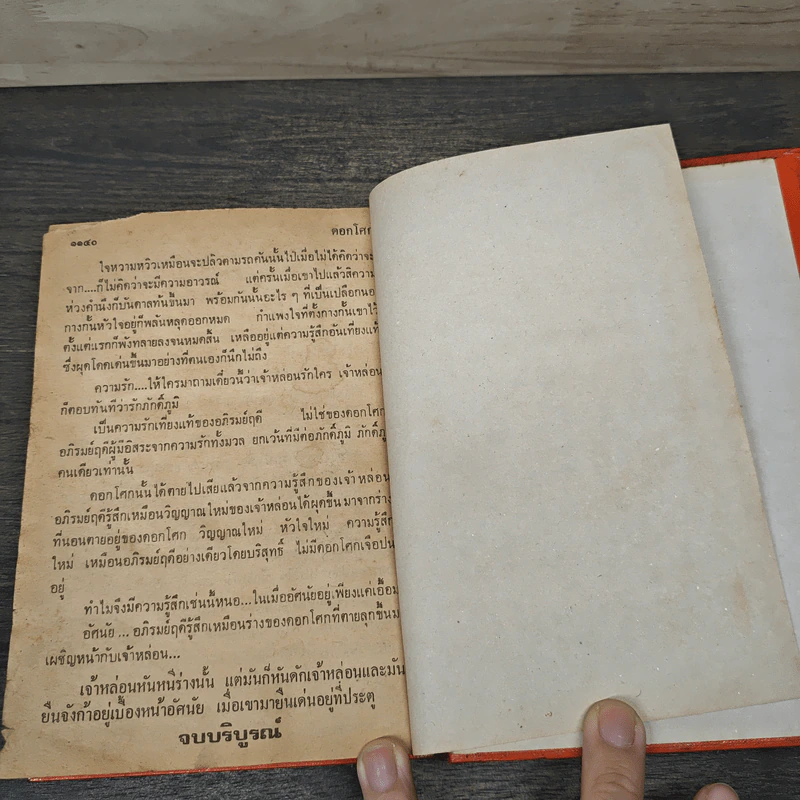 ๑๑๔๐ ดอกโศก
ใจหวามหวิวเหมือนจะปลิวตามรถคันนั้นไปเมื่อไม่ได้คิดว่าจะ
จาก....ก็ไม่คิดว่าจะมีความอาวรณ์ แต่ครั้นเมื่อเขาไปแล้วสิความ
ห่วงคำนึงก็บันดาลท้นขึ้นมา พร้อมกันนั้นอะไร ๆ ที่เป็นเปลือกนอ
กางกั้นหัวใจอยู่ก็พลันหลุดออกหมด กำแพงใจที่ตั้งกางกั้นเขาไว้
ตั้งแต่แรกก็พังทลายลงจนหมดสิ้น เหลืออยู่แต่ความรู้สึกอันเที่ยงแท้
ซึ่งผุดโดดเด่นขึ้นมาอย่างที่ตนเองก็นึกไม่ถึง
ความรัก....ให้ใครมาถามเดี๋ยวนี้ว่าเจ้าหล่อนรักใคร เจ้าหล่อน
ก็ตอบทันทีว่ารักภักดิ์ภูมิ
เป็นความรักเที่ยงแท้ของอภิรมย์ฤดี ไม่ใช่ของดอกโศก
อภิรมย์ฤดีผู้มีอิสระจากความรักทั้งมวล ยกเว้นที่มีต่อภักดิ์ภูมิ ภักดิ์ภู
คนเดียวเท่านั้น
ดอกโศกนั้นได้ตายไปเสียแล้วจากความรู้สึกของเจ้าหล่อน
อภิรมย์ฤดีรู้สึกเหมือนวิญญาณใหม่ของเจ้าหล่อนได้ผุดขึ้นมาจากร่าง
ที่นอนตายอยู่ของดอกโศก วิญญาณใหม่ หัวใจใหม่ ความรู้สึก
ใหม่ เหมือนอภิรมย์ฤดีอย่างเดียวโดยบริสุทธิ์ ไม่มีดอกโศกเจือปน
อยู่
ทำไมจึงมีความรู้สึกเช่นนี้หนอ...ในเมื่ออัศนัยอยู่เพียงแค่เอื้อม
อัศนัย ... อภิรมย์ฤดีรู้สึกเหมือนร่างของดอกโศกที่ตายลุกขึ้นม
เผชิญหน้ากับเจ้าหล่อน...
เจ้าหล่อนหันหนีร่างนั้น แต่มันก็หันดักเจ้าหล่อนและมัน
ยืนจังก้าอยู่เบื้องหน้าอัศนัย เมื่อเขามายืนเด่นอยู่ที่ประตู
จบบริบูรณ์